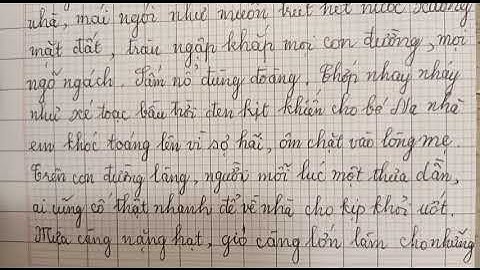 nhà, mái ngói như muốn trút hết nước xuống
mặt đất, tràn ngập khắp mọi con đường, mọi
ngõ ngách. Sấm nổ đùng đoàng, chớp nháy nháy
như xé toạc bầu trời đen kịt khiến cho bé Na nhà
em khóc toáng lên vì sợ hãi, ôm chặt vào lòng mẹ.
Trên con đường làng, người mỗi lúc một thưa dần,
ai cũng cố thật nhanh để về nhà cho kịp khỏi ướt.
Mưa càng nặng hạt, gió càng lớn làm cho những